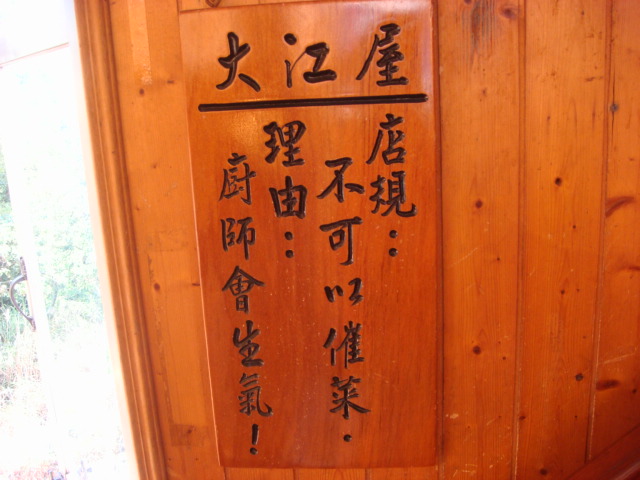 大江屋
店規：
不可以催菜．
理由：
廚師會生氣！